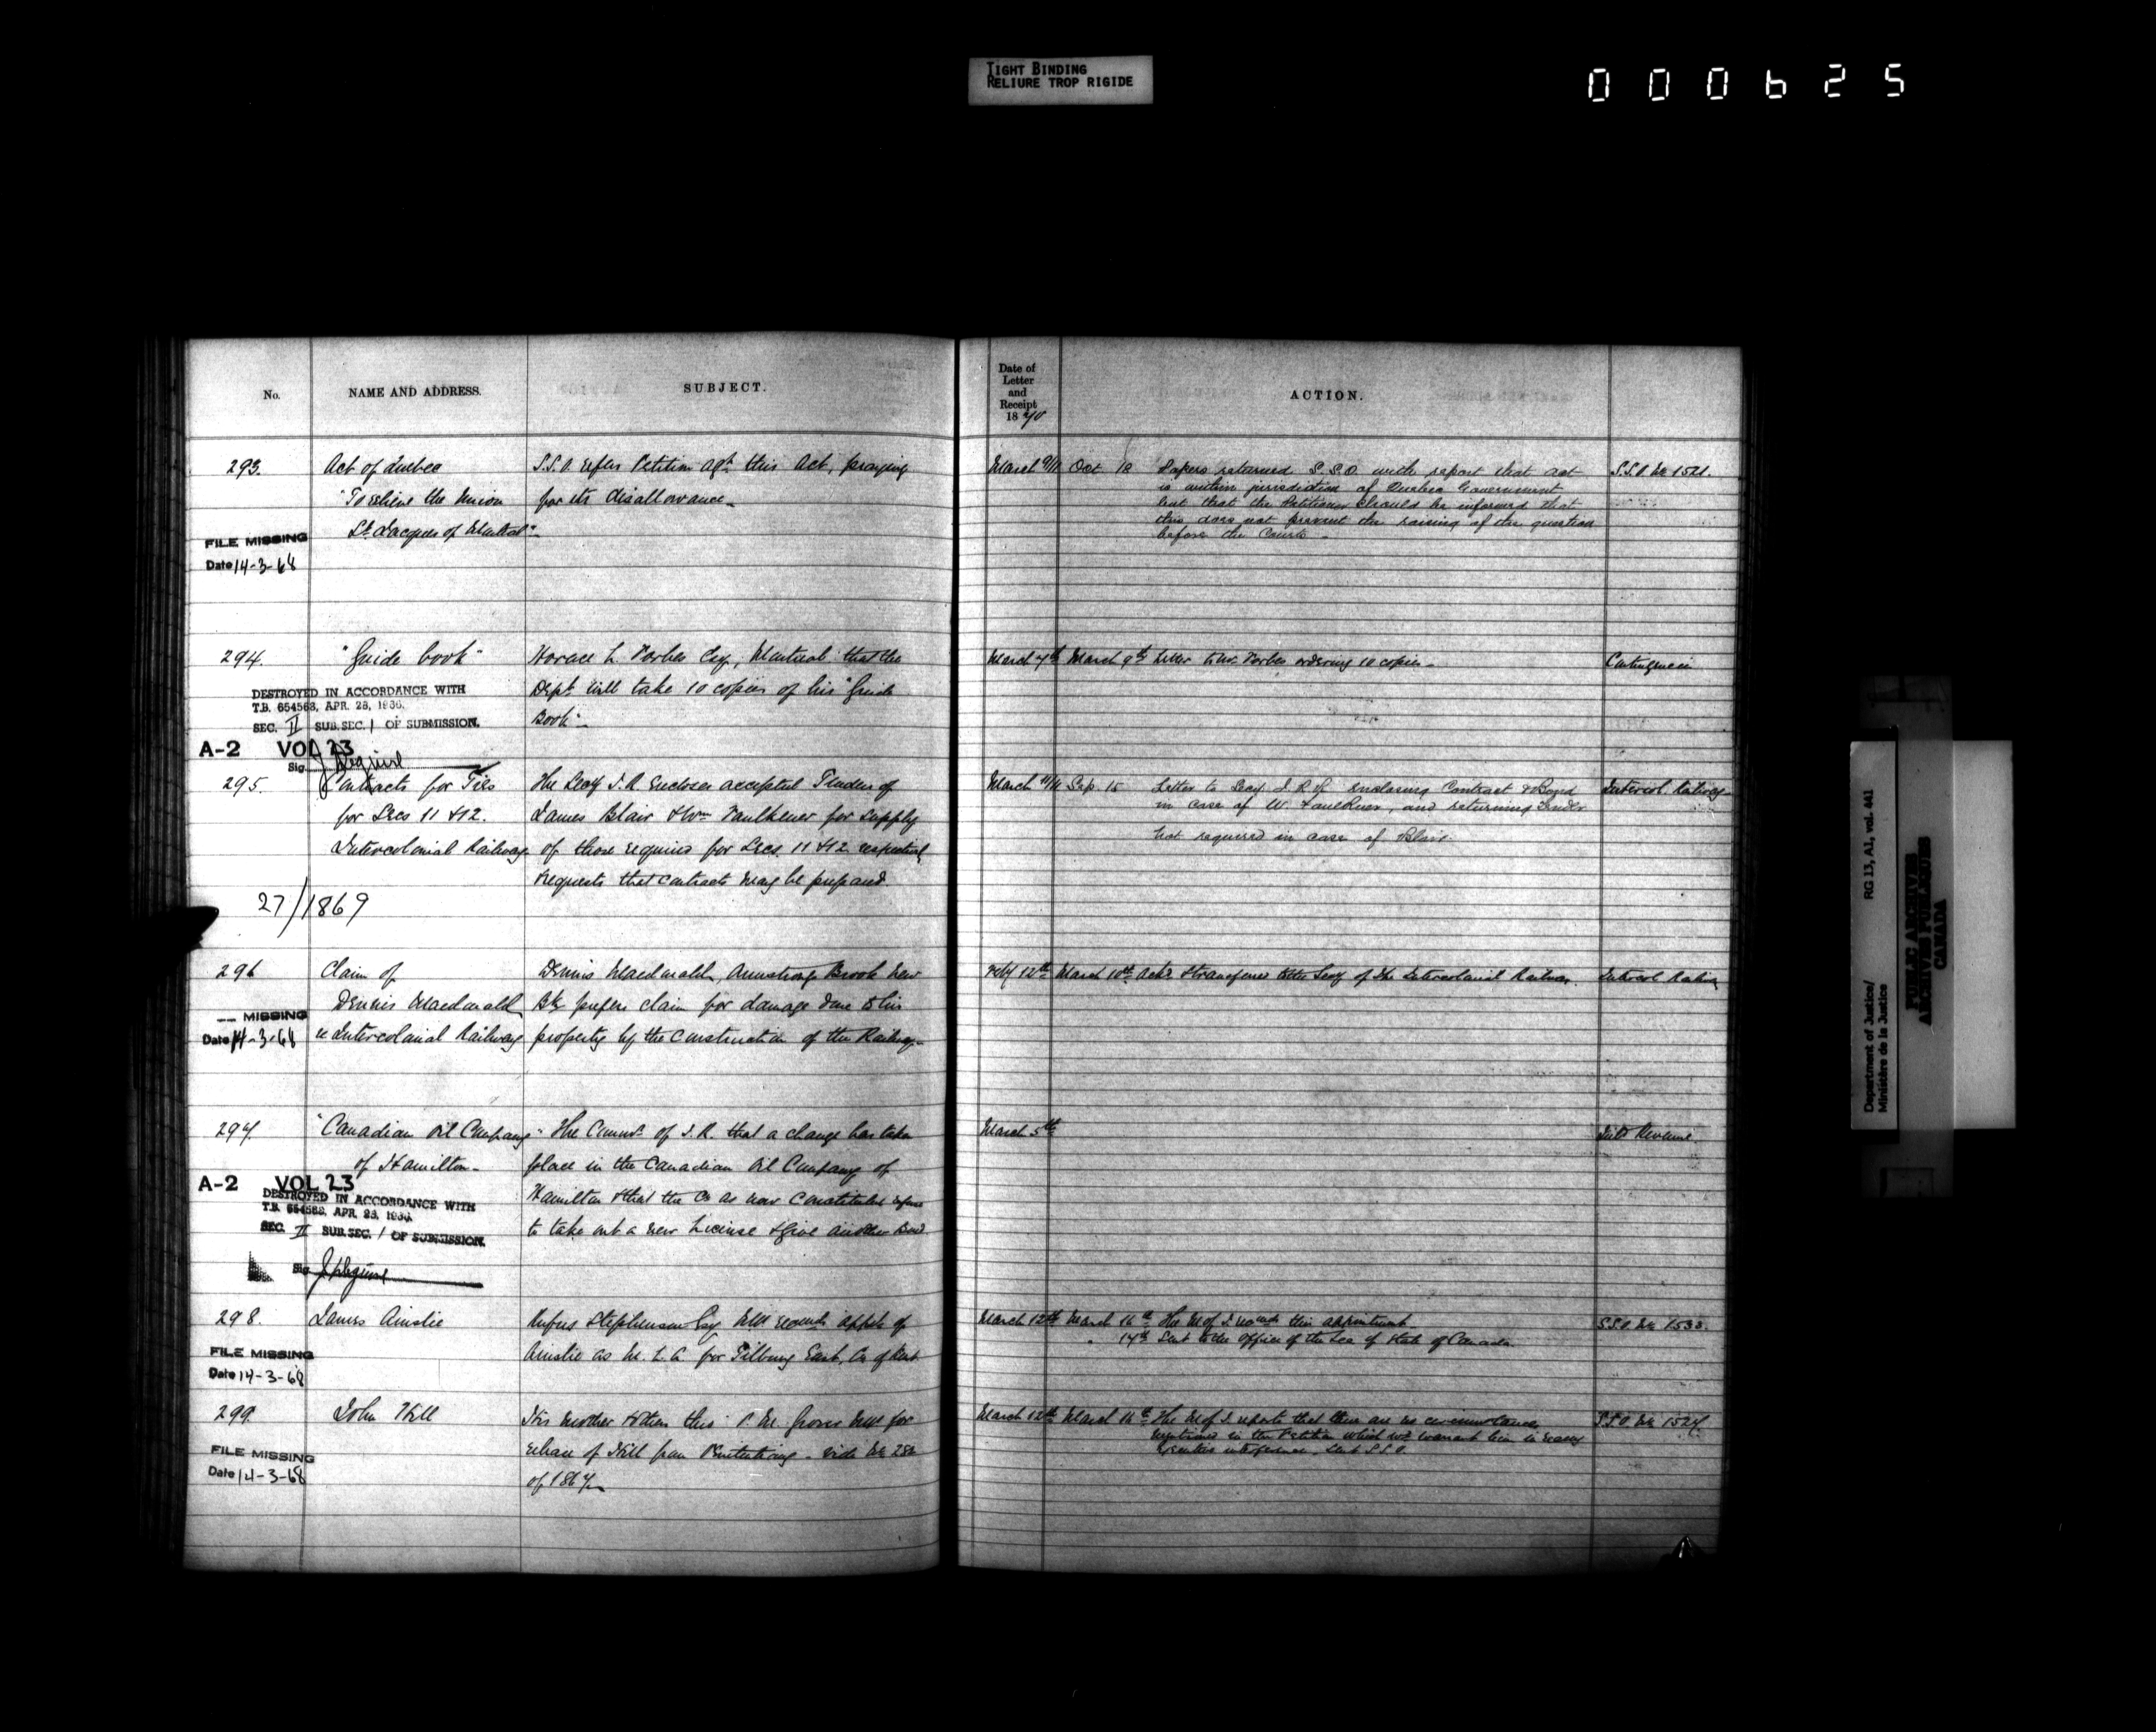 TIGHT BINDING
RELIURE TROP RIGIDE
000625
No. NAME AND ADDRESS. SUBJECT.
Date of
Letter
and
Receipt
1870
ACTION.
293. Act of Quebec S.S.O. refers Petition agst this Act, praying
"To relieve the Union for its disallowance_
St. Jacques of Montreal"_
FILE MISSING
Date 14-3-68
March 9/11 Oct 12 Papers returned S.S.O with report that act S.S.O. No 1521.
is within jurisdiction of Quebec Government
but that the Petitioner should be informed that
this does not prevent the raising of the question
before the Courts _
294. "Guide book" Horace L. Forbes Esq, Montreal that the
Dept will take 10 copies of his "Guide
Book"_
DESTROYED IN ACCORDANCE WITH
T.B. 654563, APR. 28, 1936.
SEC. II SUB.SEC. 1 OF SUBMISSION.
A-2 VOL 23
Sig.
March 7th March 9th Letter to Mr. Forbes ordering 10 copies_ Contingencies
295. Contracts for Ties The Secy I.R. encloses accepted Tenders of
for Secs 11 & 12. James Blair & Wm Faulkener for supply
Intercolonial Railway of those required for Secs. 11 & 12
requests that contracts may be prepared
27/1869
March 11/11 Sep 15 Letter to Secy I.R.y. enclosing Contract & Bond Intercol. Railway
in case of W. Faulkner, and returning Tender
not required in case of Blair.
296 Claim of Dennis Macdonald, Armstrong Brook New
Dennis Macdonald Bk prefers claim for damage done to his
re Intercolonial Railway property by the construction of the Railway_
MISSING
Date 14-3-68
Feby 12th March 10th Ackd & transferred to the Secy of the Intercolonial Railway. Intercol Railway
297. "Canadian Oil Company" The Commr of I.R. that a change has taken
of Hamilton_ place in the Canadian Oil Company of
Hamilton & that the Co as now constituted refuse
to take out a new License & give another Bond
A-2 VOL 23
DESTROYED IN ACCORDANCE WITH
T.B. 654563, APR. 28, 1936.
SEC. II SUB.SEC. 1 OF SUBMISSION.
Sig
March 5th Inld Revenue.
298. James Ainslie Rufus Stephenson Esq appt of
Ainslie as for Tilbury East, Co of Kent
FILE MISSING
Date 14-3-68
March 12th March 16th The M of J this appointment S.S.O. No 1533.
" 17th Sent to the Office of the Sec of State of Canada.
299. John Hill His mother & others thro' for
release of Hill from Penitentiary _ vide No
of 1867_
FILE MISSING
Date 14-3-68
March 12th March 16th The M of J. reports that there are no circumstances S.S.O. No 1527.
mentioned in the Petition which wd warrant him in
Executive interference. Sent S.S.O.
Department of Justice/ RG 13, A1, vol. 441
Ministère de la Justice
PUBLIC ARCHIVES
ARCHIVES PUBLIQUES
CANADA